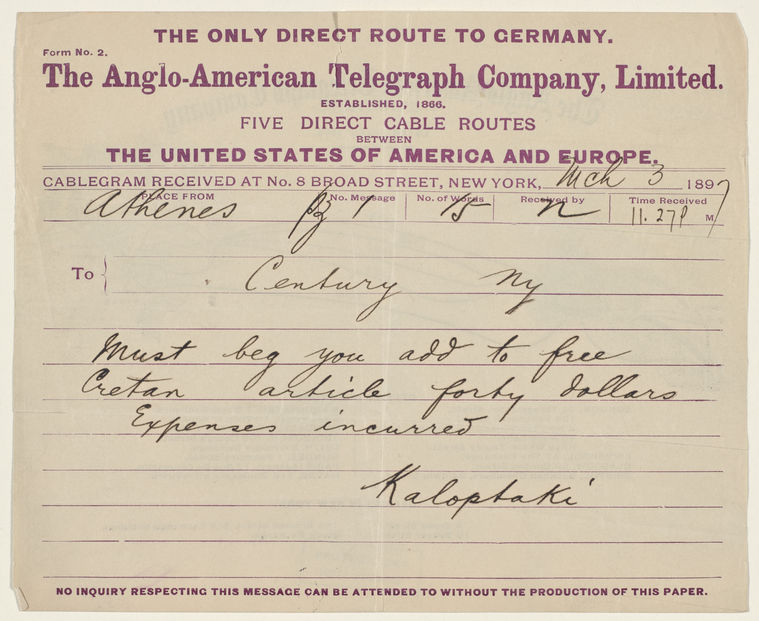 THE ONLY DIRECT ROUTE TO GERMANY.
Form No. 2.
The Anglo-American Telegraph Company, Limited.
ESTABLISHED, 1866.
FIVE DIRECT CABLE ROUTES
BETWEEN
THE UNITED STATES OF AMERICA AND EUROPE.
CABLEGRAM RECEIVED AT No. 8 BROAD STREET, NEW YORK, Mch 3 1897
PLACE FROM No. Message No. of Words Received by Time Received
Athenes 1 15 n 11.27P M
To Century Ny
Must beg you add to free
Cretan article forty dollars
Expenses incurred
Kaloptaki
NO INQUIRY RESPECTING THIS MESSAGE CAN BE ATTENDED TO WITHOUT THE PRODUCTION OF THIS PAPER.